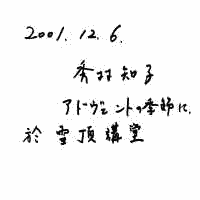 2001.12.6.
秀村知子
アドヴェントの季節に.
於 雪頂講堂